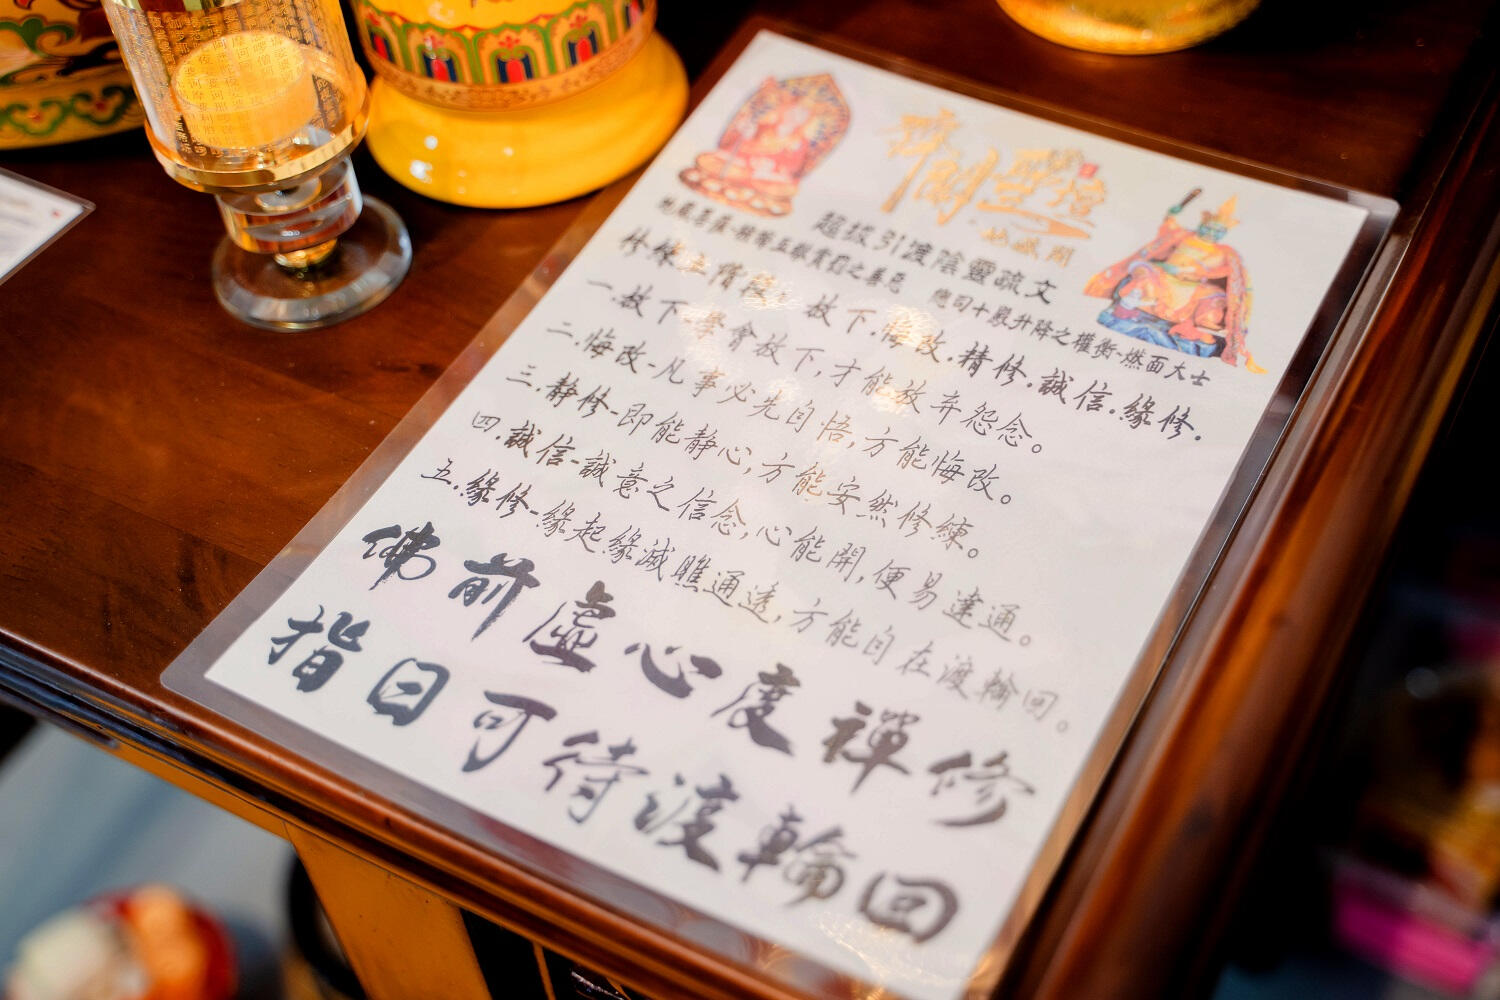 超拔引渡陰靈疏文
地藏菩薩-稽察五獄賞罰之善惡　總司十殿升降之權衡-燃面大士
修練五階段：放下.悔改.精修.誠信.緣修.
一.放下-學會放下,才能放弃怨念。
二.悔改-凡事必先自悟,方能悔改。
三.靜修-即能靜心,方能安然修練。
四.誠信-誠意之信念,心能開,便易達通。
五.緣修-緣起緣滅瞧通透,方能自在渡輪回。
佛前虛心度禪修
指日可待渡輪回